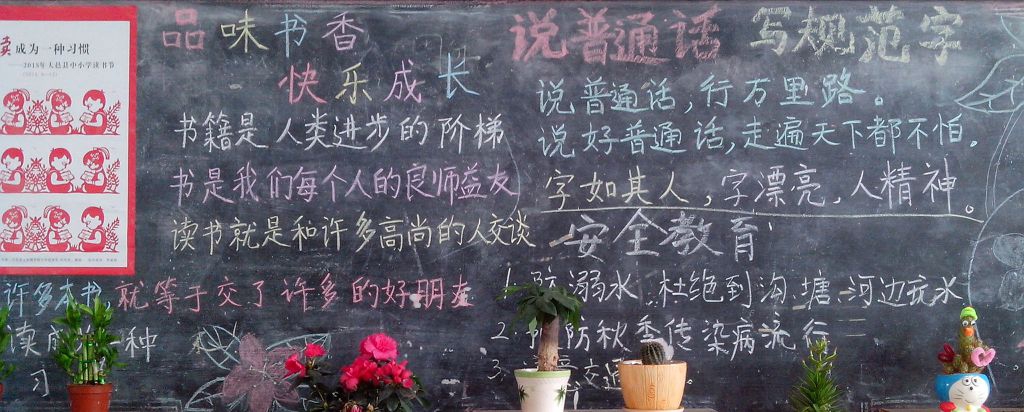 成为一种习惯
品味书香
快乐成长
书籍是人类进步的阶梯
书是我们每个人的良师益友
读书就是和许多高尚的人交谈
许多本书,就等于交了许多的好朋友
一种
习
说普通话 写规范字
说普通话,行万里路。
说好普通话,走遍天下都不怕。
字如其人,字漂亮,人精神。
安全教育
1. 防溺水 杜绝到沟、塘、河边玩水
2. 预防秋季传染病流行
3.